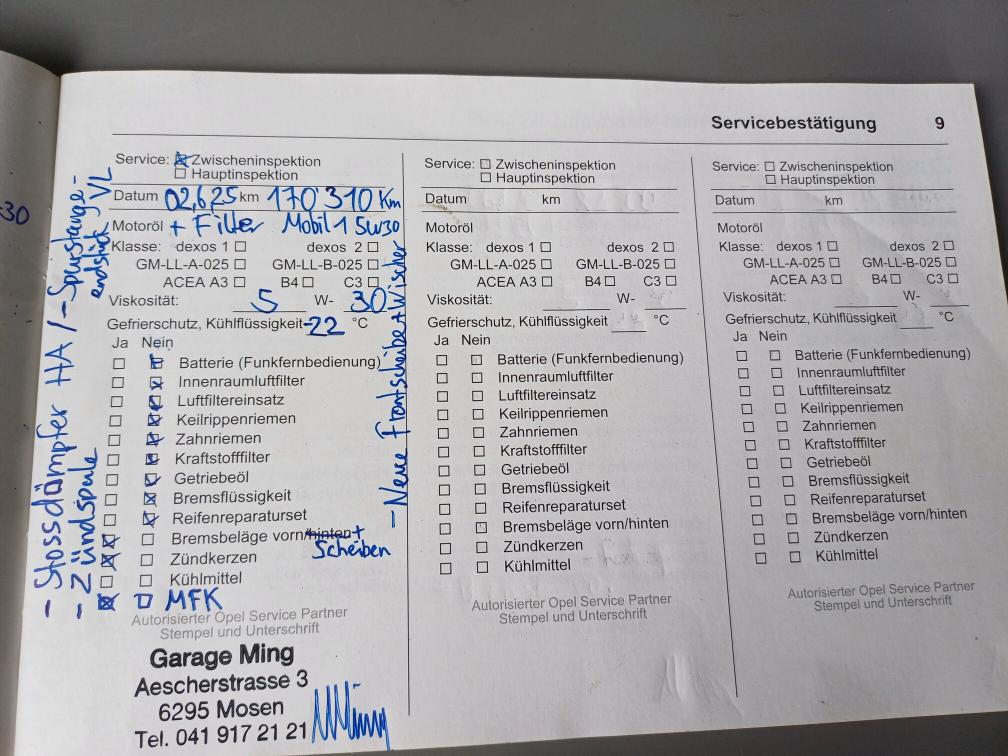 Servicebestätigung 9
-30
Service: Zwischeninspektion
Hauptinspektion
Datum 02.6.25 km 170'310 Km
Motoröl + Filter Mobil 1 5W30
Klasse: dexos 1 dexos 2
GM-LL-A-025 GM-LL-B-025
ACEA A3 B4 C3
Viskosität: 5 W- 30
Gefrierschutz, Kühlflüssigkeit -22 °C
Ja Nein
Batterie (Funkfernbedienung)
Innenraumluftfilter
Luftfiltereinsatz
Keilrippenriemen
Zahnriemen
Kraftstofffilter
Getriebeöl
Bremsflüssigkeit
Reifenreparaturset
Bremsbeläge vorn/hinten +
Scheiben
Zündkerzen
Kühlmittel
MFK
Autorisierter Opel Service Partner
Stempel und Unterschrift
Garage Ming
Aescherstrasse 3
6295 Mosen
Tel. 041 917 21 21
- Stossdämpfer HA / - Spurstange-
endstück VL
- Zündspule
- Neue Frontscheibe + Wischer
Service: Zwischeninspektion
Hauptinspektion
Datum km
Motoröl
Klasse: dexos 1 dexos 2
GM-LL-A-025 GM-LL-B-025
ACEA A3 B4 C3
Viskosität: W-
Gefrierschutz, Kühlflüssigkeit °C
Ja Nein
Batterie (Funkfernbedienung)
Innenraumluftfilter
Luftfiltereinsatz
Keilrippenriemen
Zahnriemen
Kraftstofffilter
Getriebeöl
Bremsflüssigkeit
Reifenreparaturset
Bremsbeläge vorn/hinten
Zündkerzen
Kühlmittel
Autorisierter Opel Service Partner
Stempel und Unterschrift
Service: Zwischeninspektion
Hauptinspektion
Datum km
Motoröl
Klasse: dexos 1 dexos 2
GM-LL-A-025 GM-LL-B-025
ACEA A3 B4 C3
Viskosität: W-
Gefrierschutz, Kühlflüssigkeit °C
Ja Nein
Batterie (Funkfernbedienung)
Innenraumluftfilter
Luftfiltereinsatz
Keilrippenriemen
Zahnriemen
Kraftstofffilter
Getriebeöl
Bremsflüssigkeit
Reifenreparaturset
Bremsbeläge vorn/hinten
Zündkerzen
Kühlmittel
Autorisierter Opel Service Partner
Stempel und Unterschrift